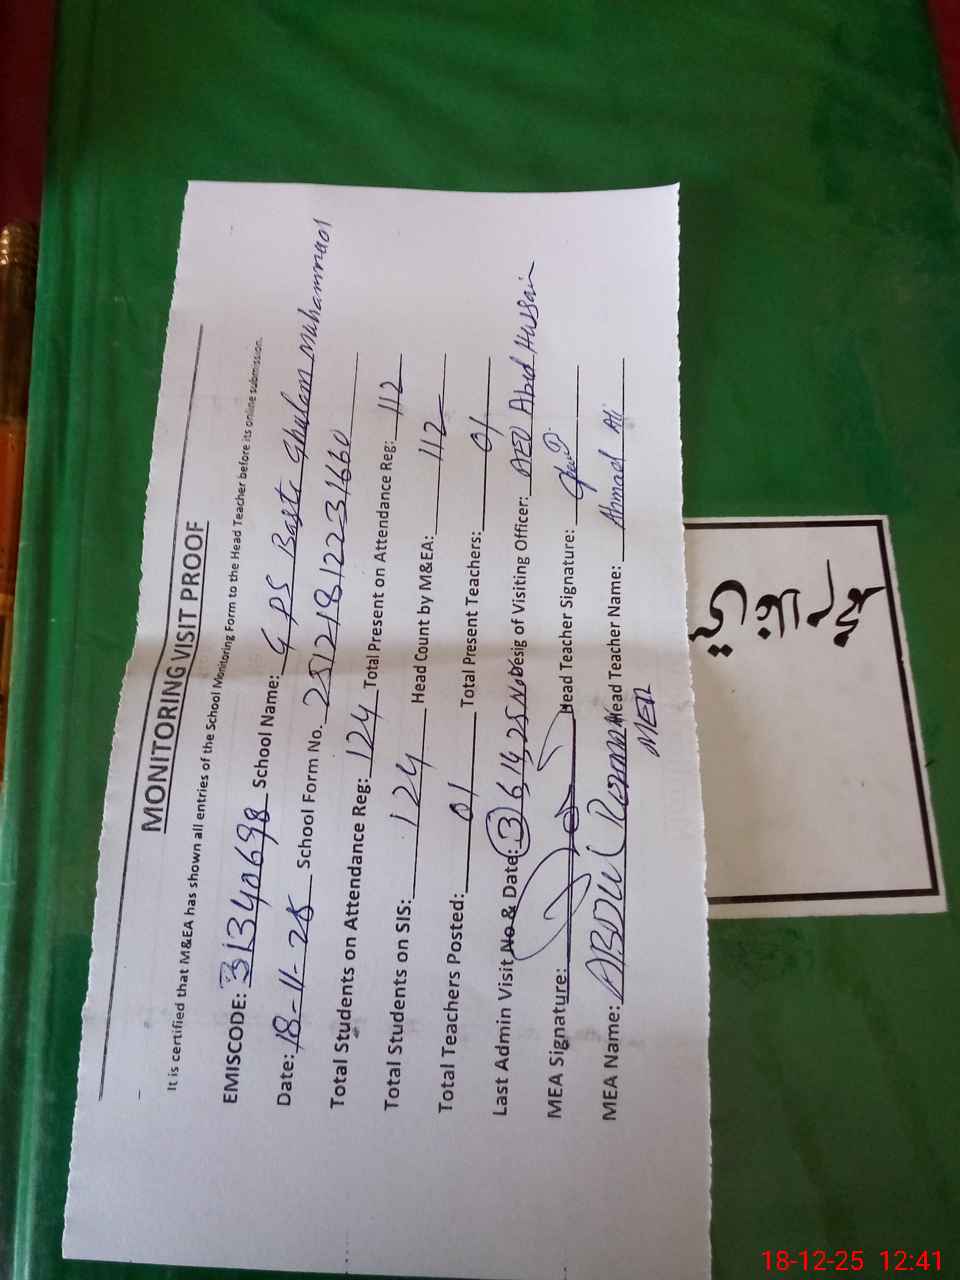 MONITORING VISIT PROOF
It is certified that M&EA has shown all entries of the School Monitoring Form to the Head Teacher before its online submission.
EMISCODE: 31340698 School Name: GPS Basti Ghulam Muhammad
Date: 18-11-25 School Form No. 251218122231660
Total Students on Attendance Reg: 124 Total Present on Attendance Reg: 112
Total Students on SIS: 124 Head Count by M&EA: 112
Total Teachers Posted: 01 Total Present Teachers: 01
Last Admin Visit No & Date: 3 6,14,25 Nov Desig of Visiting Officer: AEO Abid Hussain
MEA Signature: Head Teacher Signature:
MEA Name: ABDUL Head Teacher Name: Ahmad Ali
18-12-25 12:41